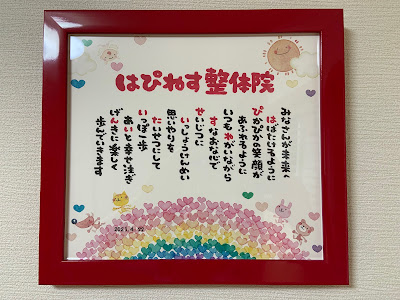 はぴねす整体院
みなさんが未来へ
はばたけるように
ぴかぴかの笑顔が
あふれるように
いつもねがいながら
すなおな心で
せいじつに
いっしょうけんめい
思いやりを
たいせつにして
いっぽ一歩
あいと幸せ注ぎ
げんきに楽しく
歩んでいきます